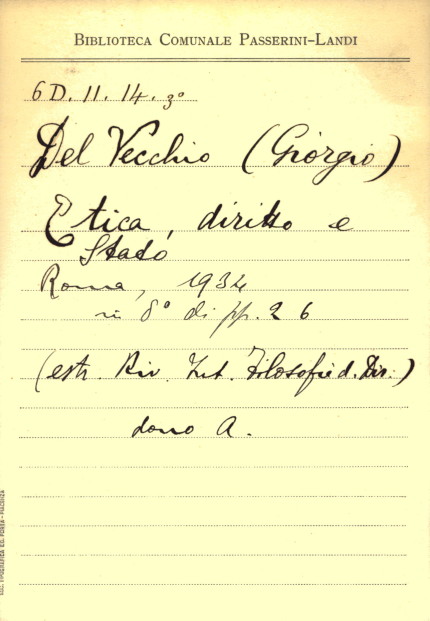 BIBLIOTECA COMUNALE PASSERINI-LANDI
6 D. 11. 14. 3º
Del Vecchio (Giorgio)
Etica, diritto e
Stato
Roma, 1934
in 8° di pp. 26
(estr. Riv. Int. Filosofie d. Dir.)
dono A.